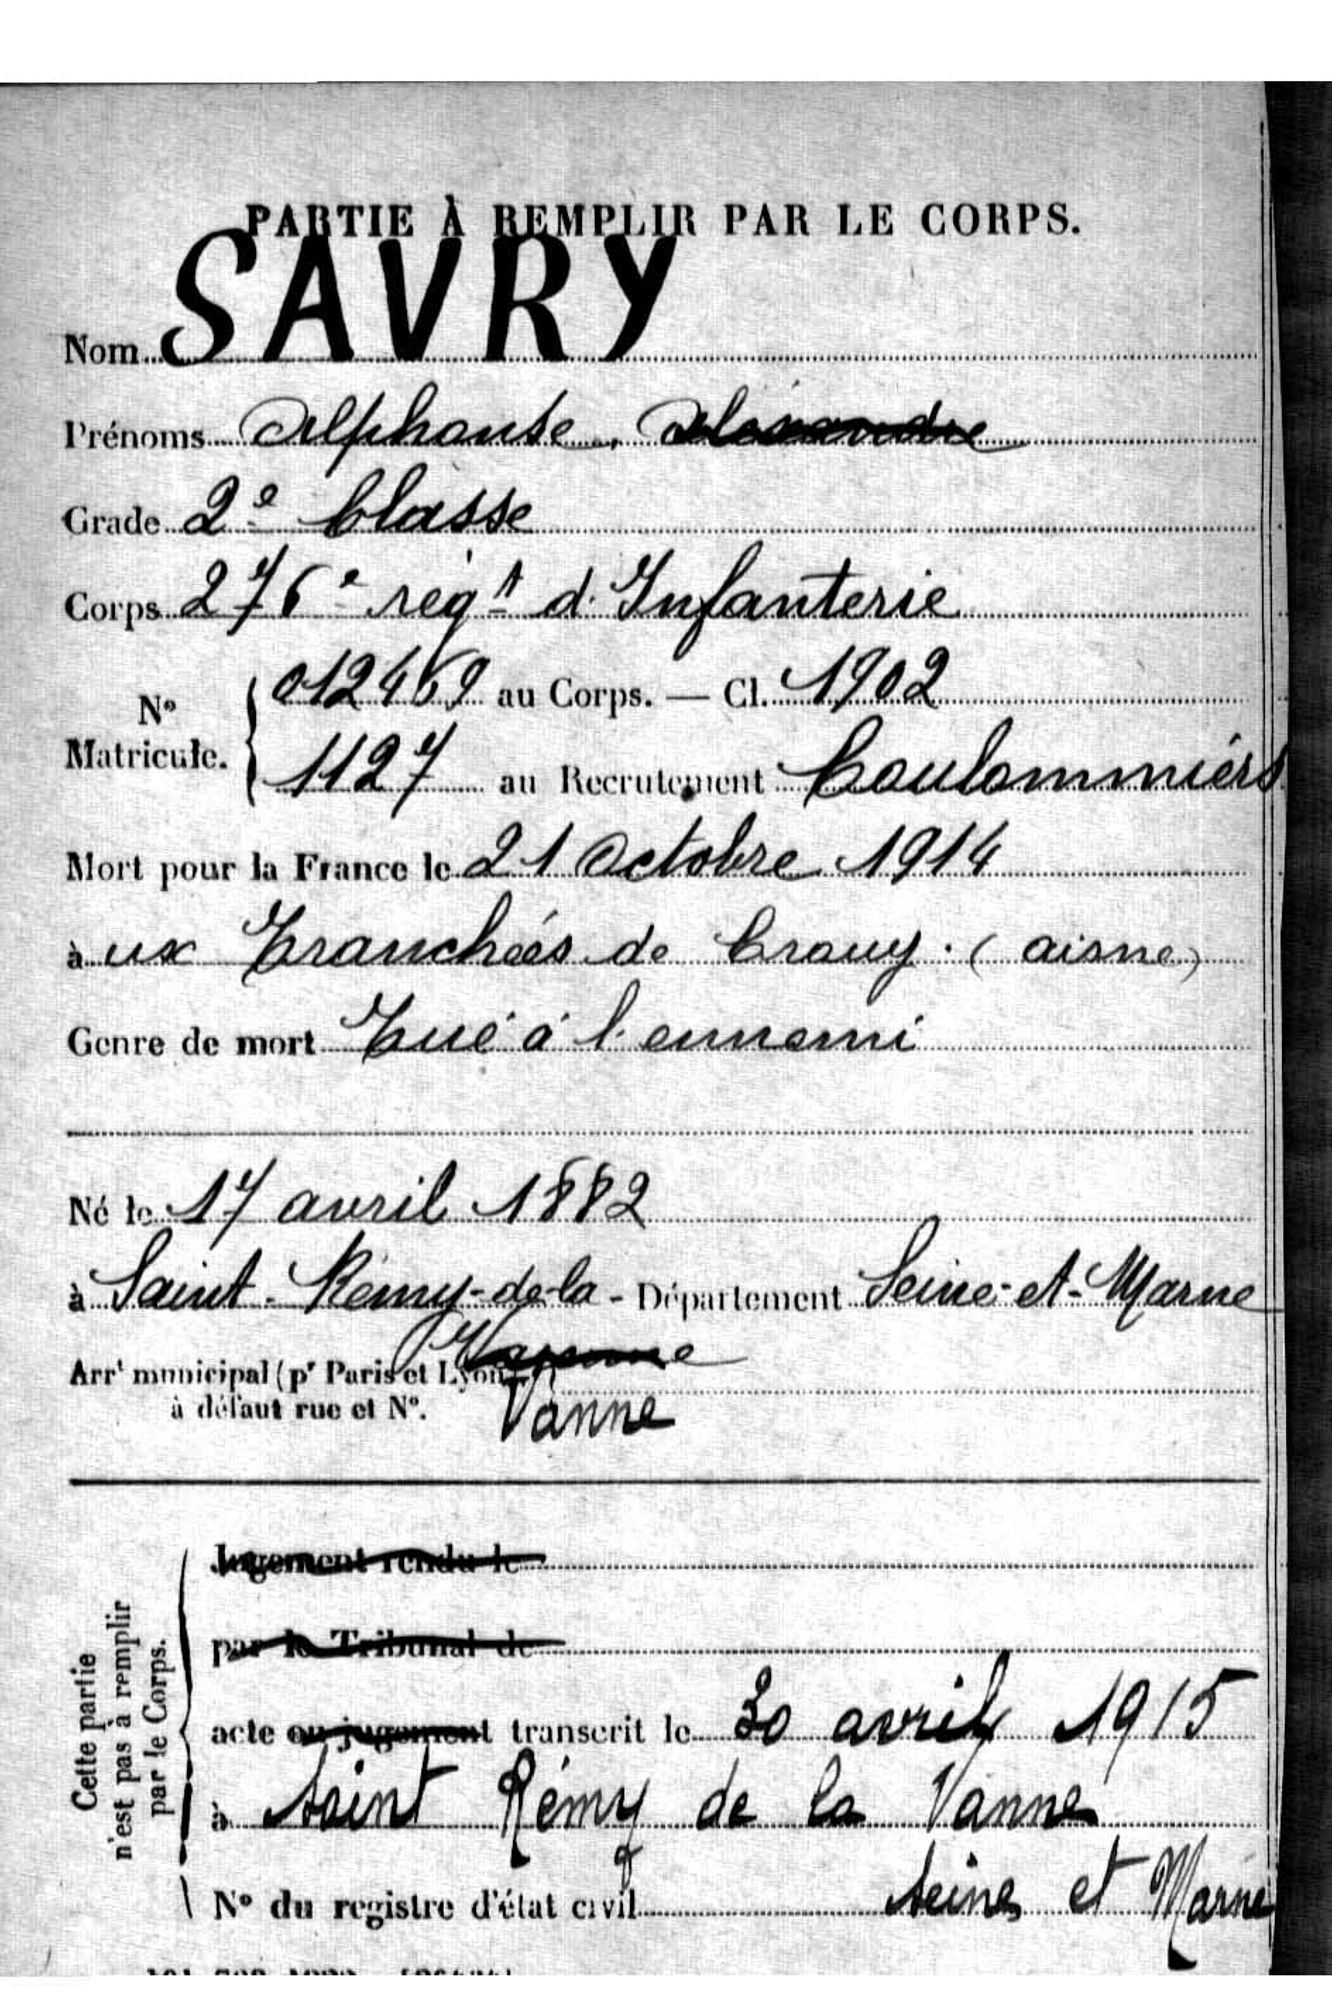 PARTIE À REMPLIR PAR LE CORPS.
Nom SAVRY
Prénoms Alphonse, Alexandre
Grade 2e Classe
Corps 276e régt d'Infanterie
No Matricule. 012469 au Corps. — Cl. 1902
1127 au Recrutement Coulommiers
Mort pour la France le 21 Octobre 1914
à ux Tranchées de Crouy. (Aisne)
Genre de mort Tué à l'ennemi
Né le 17 avril 1882
à Saint-Rémy-de-la- Département Seine-et-Marne
Arrt municipal (pr Paris et Lyon)
à défaut rue et No. Vanne
Cette partie
n'est pas à remplir
par le Corps.
Jugement rendu le
par le Tribunal de
acte ou jugement transcrit le 30 avril 1915
à Saint Rémy de la Vanne
No du registre d'état civil Seine et Marne